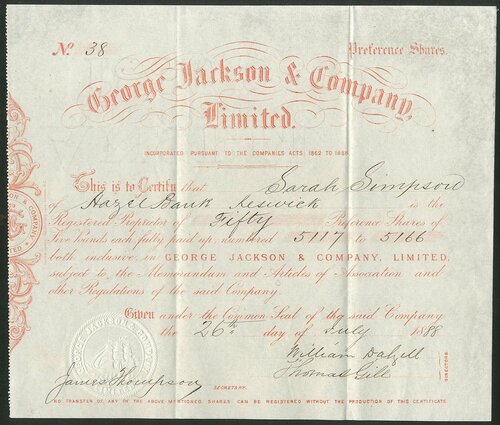 No. 38 Preference Shares.
George Jackson & Company,
Limited.
INCORPORATED PURSUANT TO THE COMPANIES ACTS 1862 TO 1886
This is to Certify that Sarah Simpson
of Hazel Bank Keswick is the
Registered Proprietor of Fifty Preference Shares of
Five Pounds each fully paid up, numbered 5117 to 5166
both inclusive in GEORGE JACKSON & COMPANY, LIMITED,
subject to the Memorandum and Articles of Association and
other Regulations of the said Company.
Given under the Common Seal of the said Company
the 26th day of July 1888
William Dalzell
Thomas Gill
DIRECTORS
James Thompson SECRETARY.
NO TRANSFER OF ANY OF THE ABOVE MENTIONED SHARES CAN BE REGISTERED WITHOUT THE PRODUCTION OF THIS CERTIFICATE